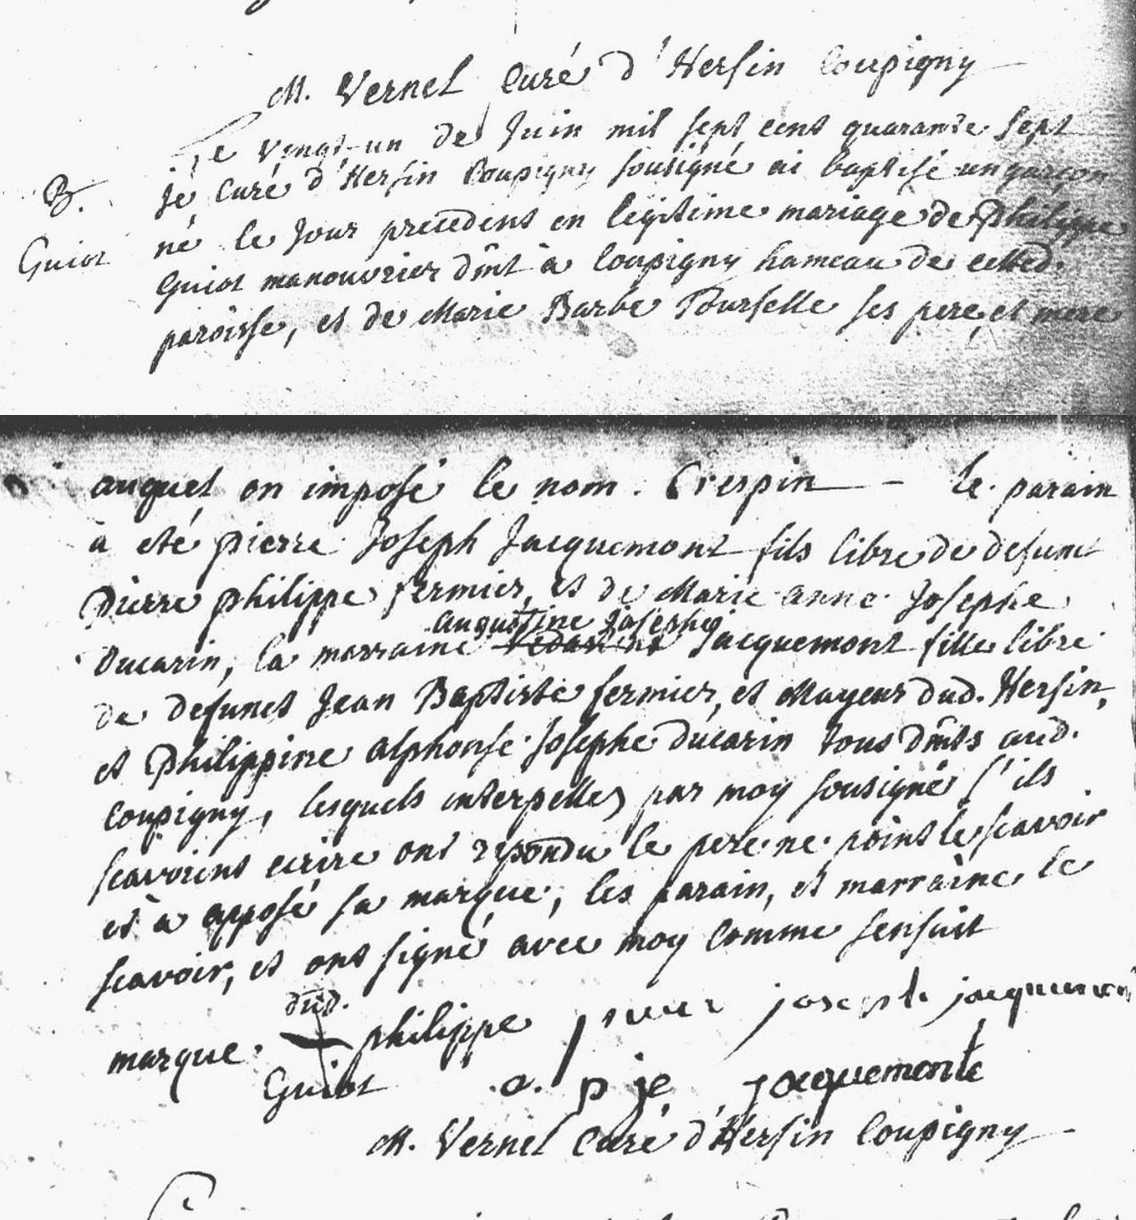 M. Vernel Curé d'Hersin Coupigny
Le vingt-un de Juin mil sept cent quarante sept
Je Curé d'Hersin Coupigny sousigné ai baptisé un garçon
B.
Guiot
né le jour precedent en legitime mariage de Philippe
Guiot manouvrier dmt à Coupigny hameau de cetted.
paroisse, et de Marie Barbe Tourselle ses pere, et mere
auquel on imposé le nom. Crespin - le parain
à eté pierre Joseph Jacquemont fils libre de defunct
Pierre philippe fermier, et de Marie anne Josephe
augustine Josephe
Ducarin, la marraine Jacquemont fille libre
de defunct Jean Baptiste fermier, et Mayeur dud. Hersin,
et Philippine alphonse Josephe ducarin tous dmts aud.
Coupigny, lesquels interpellez par moy sousigné s'ils
scavoient ecrire ont repondu le pere ne point le scavoir
et à apposé sa marque, les parain, et marraine le
scavoir, et ont signé avec moy comme sensuit
dud.
marque + philippe pieer joseph jacquemont
Guiot a. p je jacquemonte
M. Vernel Curé d'Hersin Coupigny